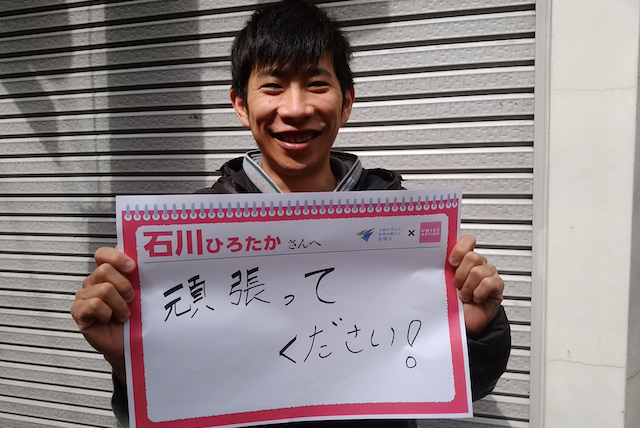 石川ひろたか さんへ
×
VOICE
ACTION
頑張って
ください!